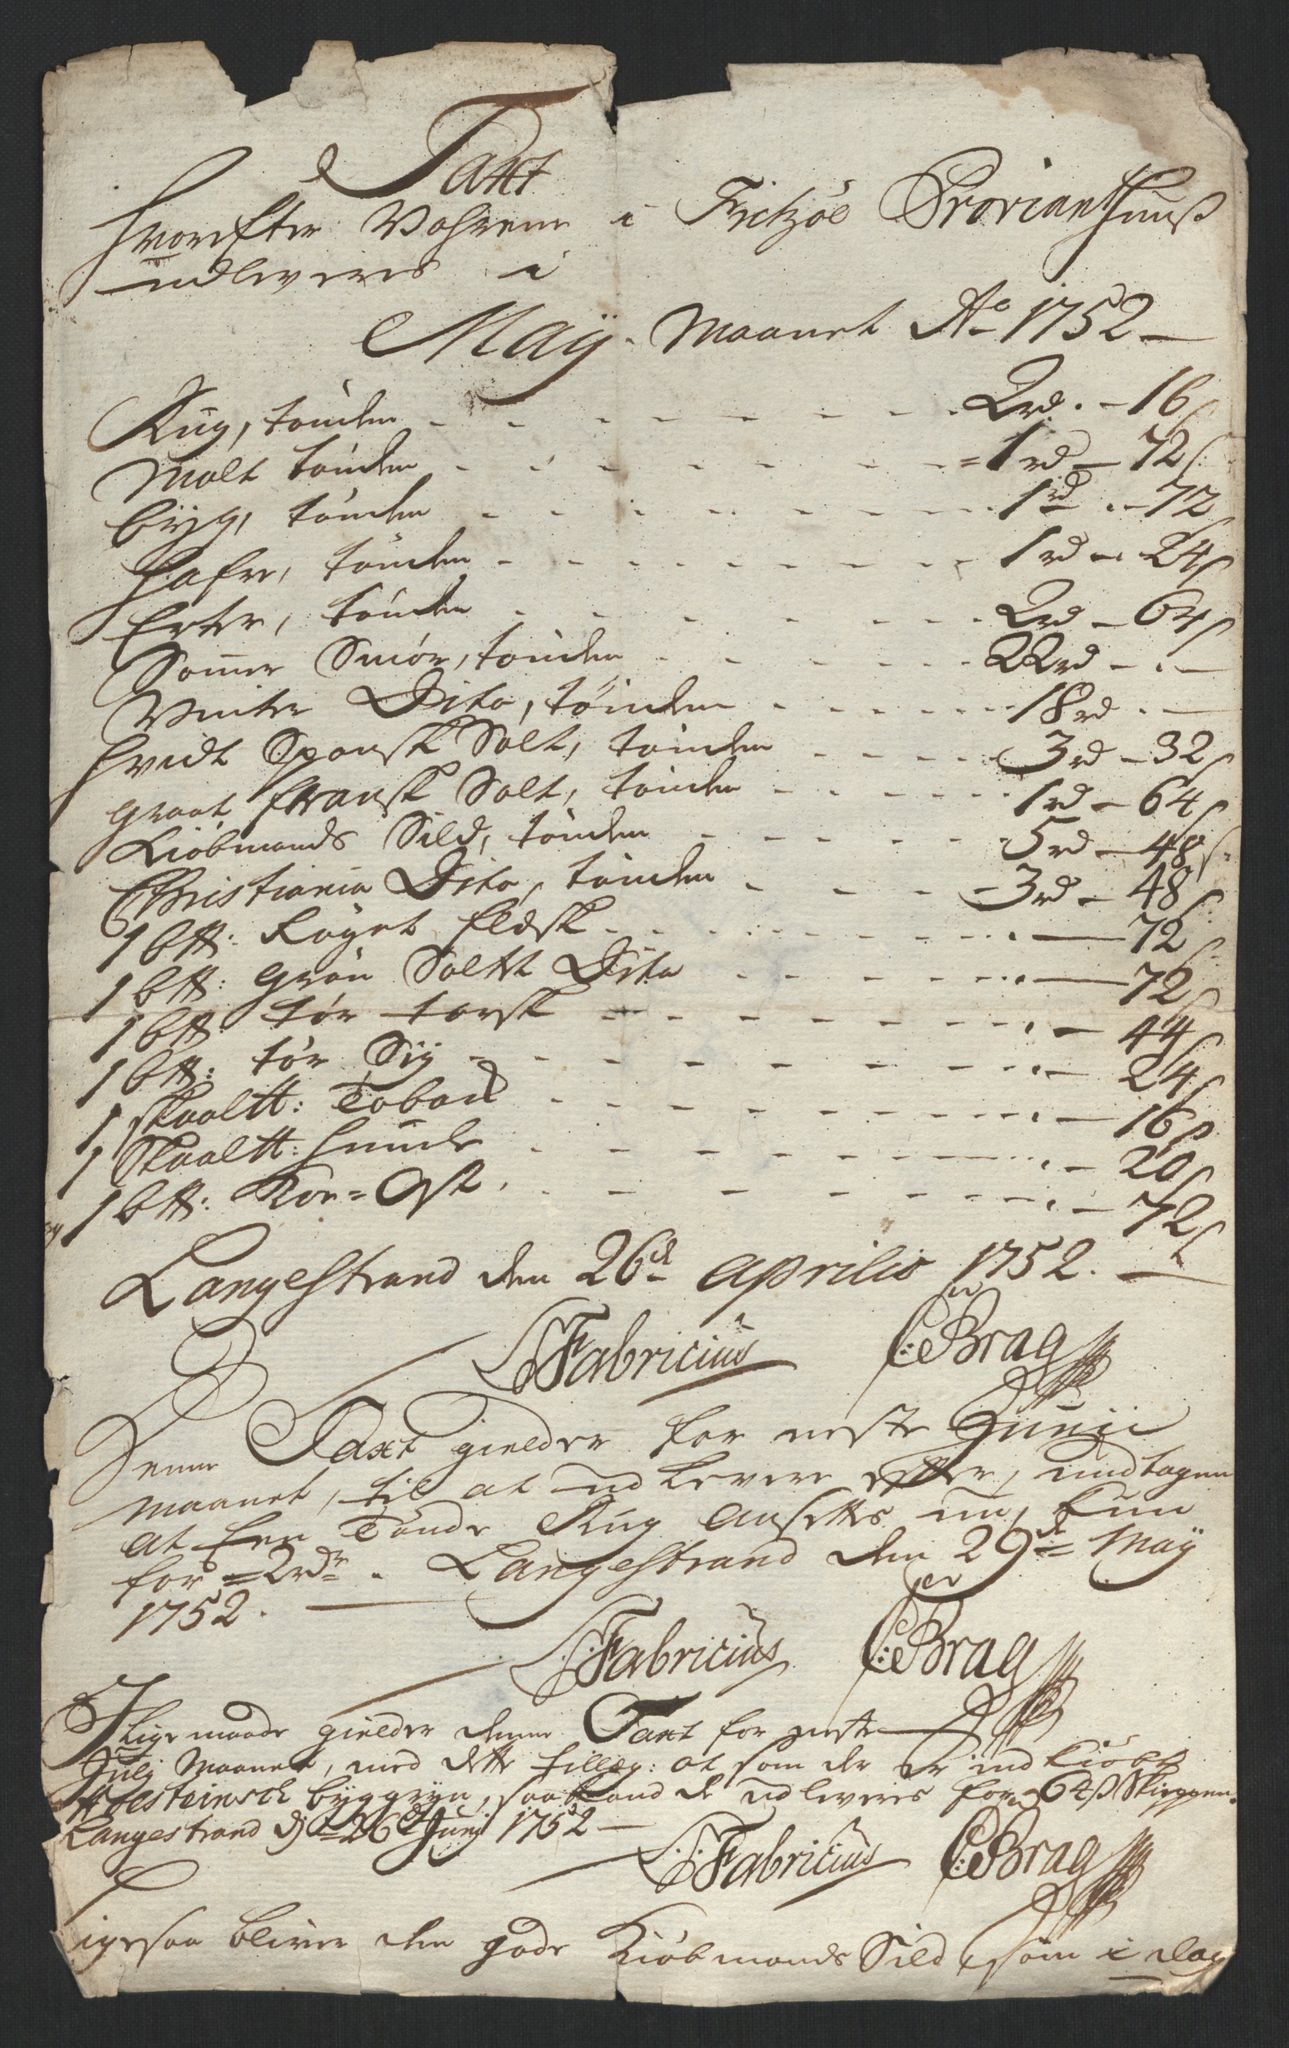 Taxt
Hvorefter Vahrene i Fritzöe Proviant Huuß
udleveres i
Maÿ Maanet Ao 1752
Rug, tönden 2rd. - 16ß
Malt tönden 1rd - 72ß
Bÿg, tönden 1rd. - 72
Hafre, tönden 1rd - 24ß
Erter, tönden 2rd - 64ß
Somer Smör, tönden 22rd - . -
Vinter Dito, tönden 18rd . -
Hvidt Spansk Salt, tönden 3rd - 32ß
graat fransk Salt, tönden 1rd - 64ß
Kiöbmands Sild, tönden 5rd - 48ß
Christiania Dito, tönden 3rd - 48ß
1 btt: Röget flesk . - 72ß
1 btt: grön Saltt Dito . - 72ß
1 btt: tör torsk . - 44ß
1 btt: tör Sÿ . - 24ß
1 skaaltt: Toback . - 16ß
1 Skaaltt: Humle . - 20ß
1 btt: Koe=Ost . - 72ß
Langestrand den 26d aprilis 1752.
Fabricius CBrag
Denne Taxt gielder for neste Junii
Maanet, til at udlevere efter, undtagen
at Een Tönde Rug ansettes nu, kun
for 2rdr. Langestrand den 29d Maÿ
1752.
Fabricius CBrag
J lige maade gielder denne Taxt for neste
Julj Maanet, med dette tilleg: at som der er indkiöbt
Holsteinsch bÿggrÿn, saa kand de udleveres for 64ß Skieppen.
Langestrand dj 26d Junj 1752
Fabricius CBrag
Ligesaa bliver den gode Kiöbmands Sild, som i Dag